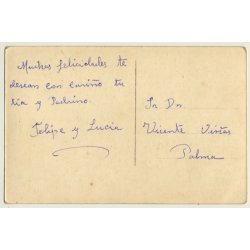 Muchas felicidades te
desean con cariño tu
tia y Padrino.
Felipa y Lucia
Sr Dn.
Vicente
Palma